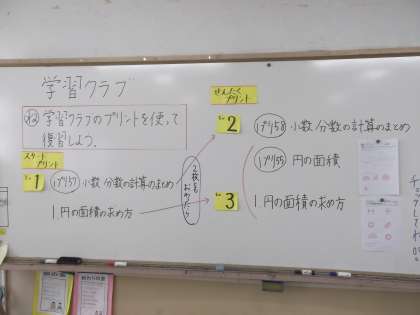 学習クラブ
ね 学習クラブのプリントを使って
復習しよう。
スタート
プリント
1
プリ57 小数/分数の計算のまとめ
1. 円の面積の求め方
2枚をおわったら
せんたく
プリント
2
プリ58 小数/分数の計算のまとめ
プリ55 円の面積
3
1. 円の面積の求め方